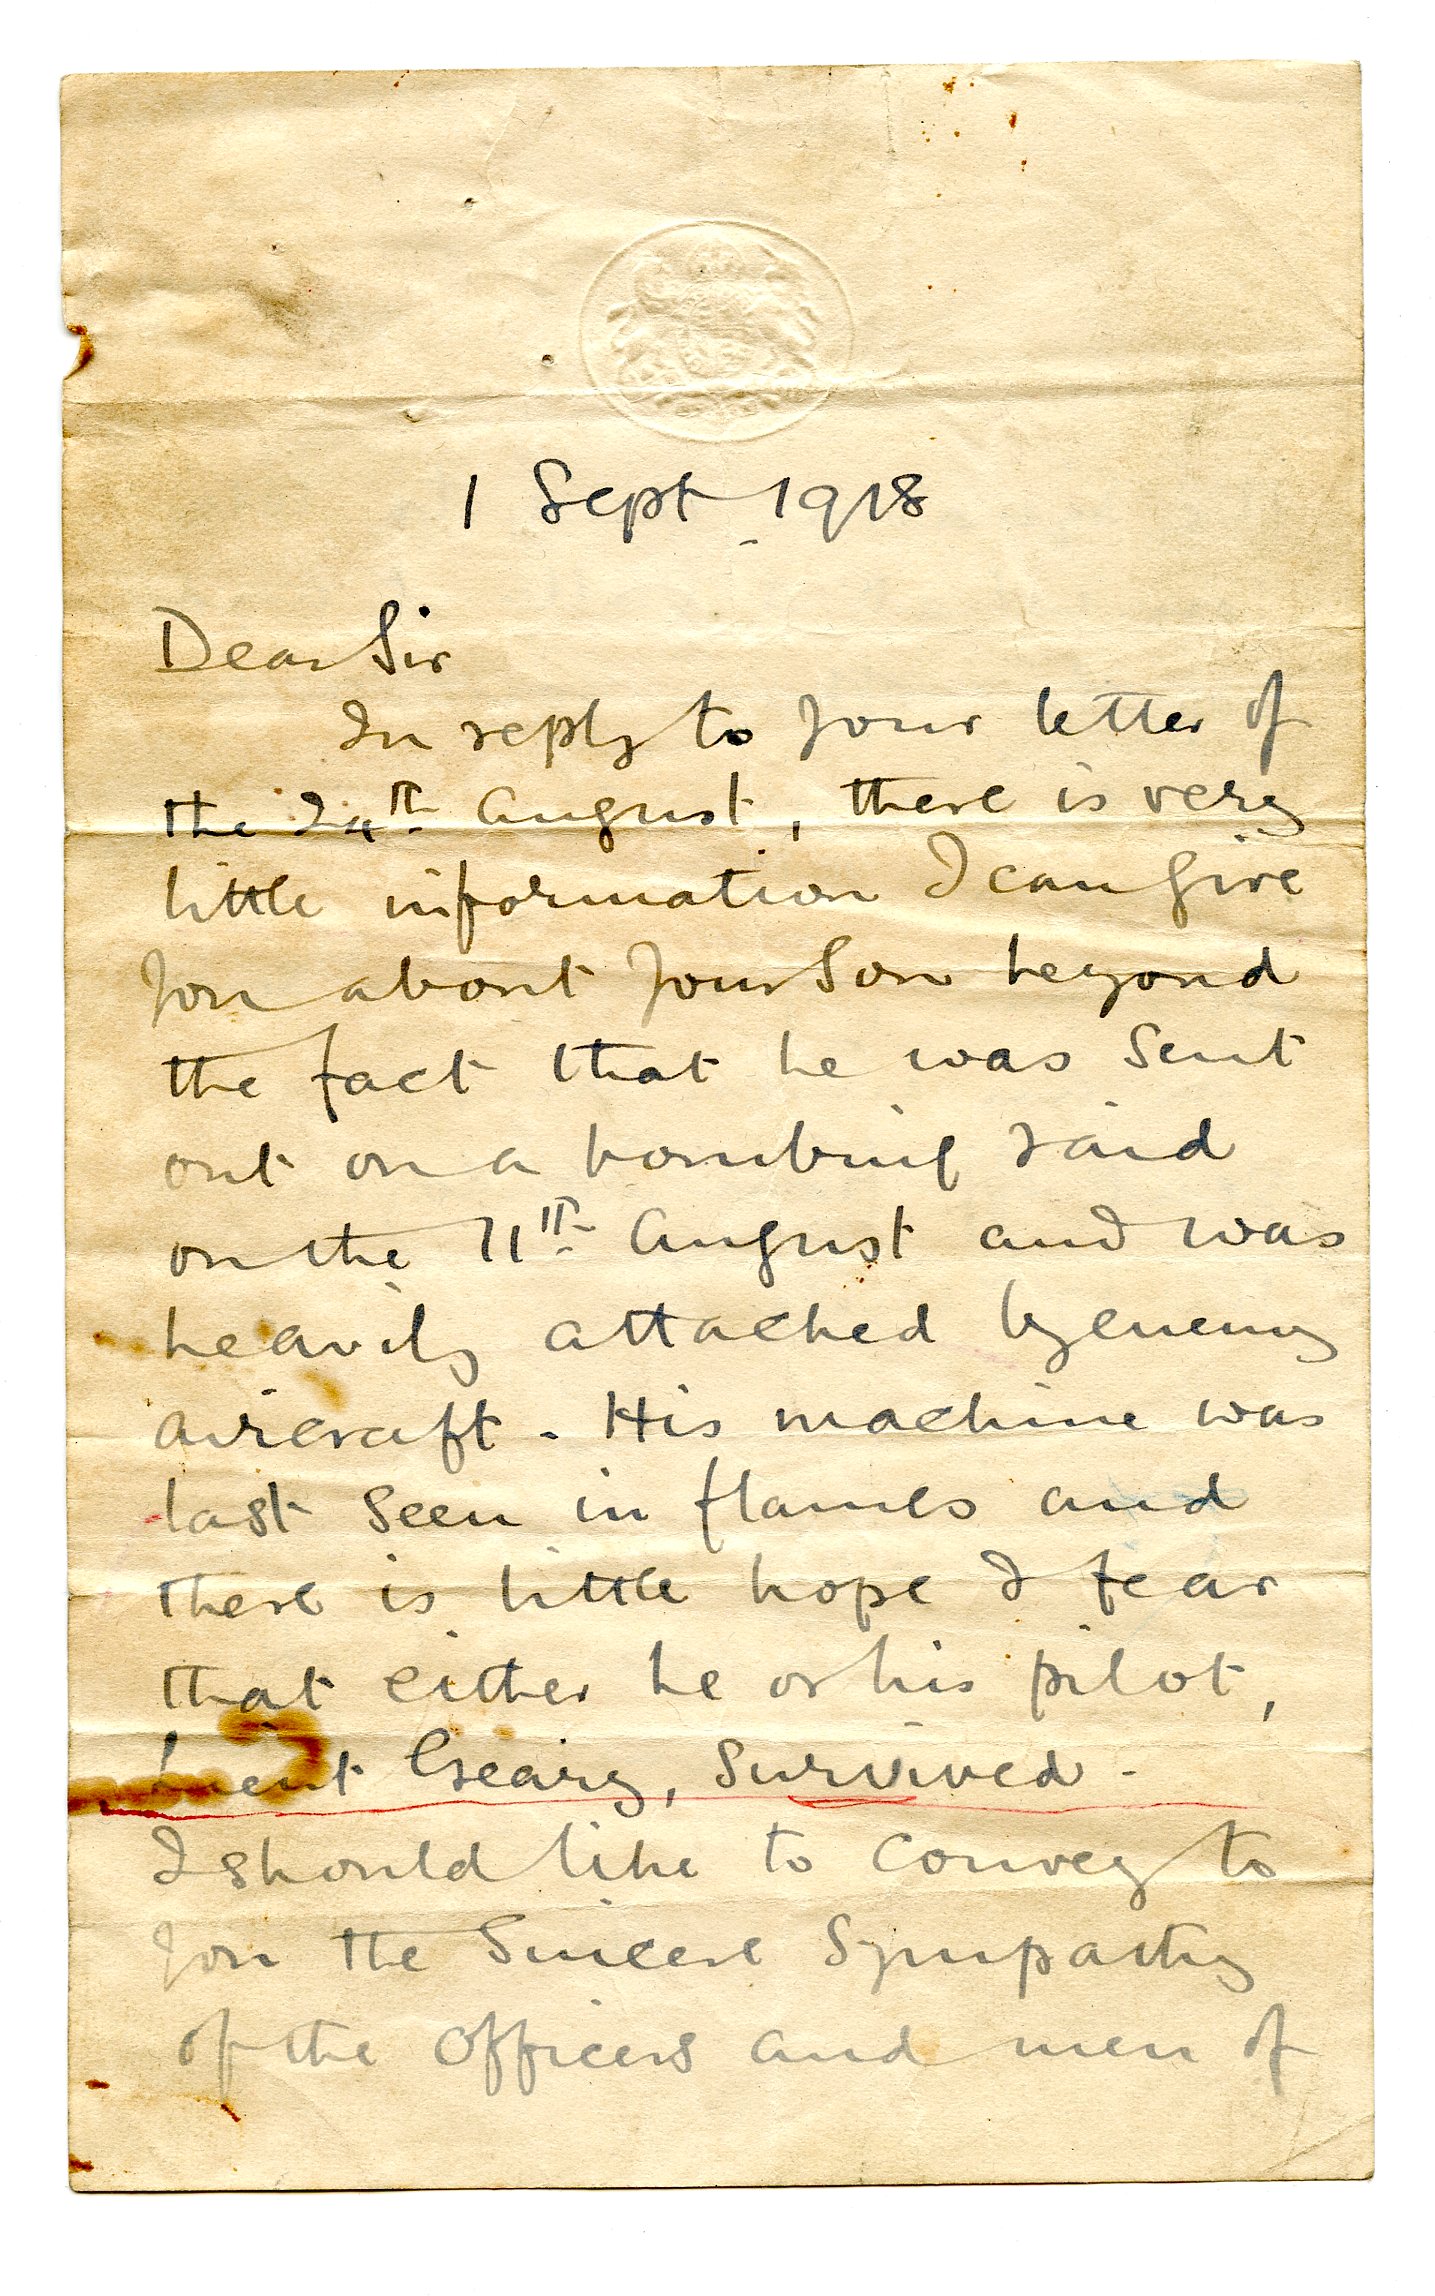 1 Sept. 1918
Dear Sir
In reply to your letter of
the 24th August, there is very
little information I can give
you about your Son beyond
the fact that he was sent
out on a bombing raid
on the 11th August and was
heavily attacked by enemy
aircraft. His machine was
last seen in flames and
there is little hope I fear
that either he or his pilot,
Lieut Geary, survived.
I should like to convey to
you the sincere sympathy
of the Officers and men of